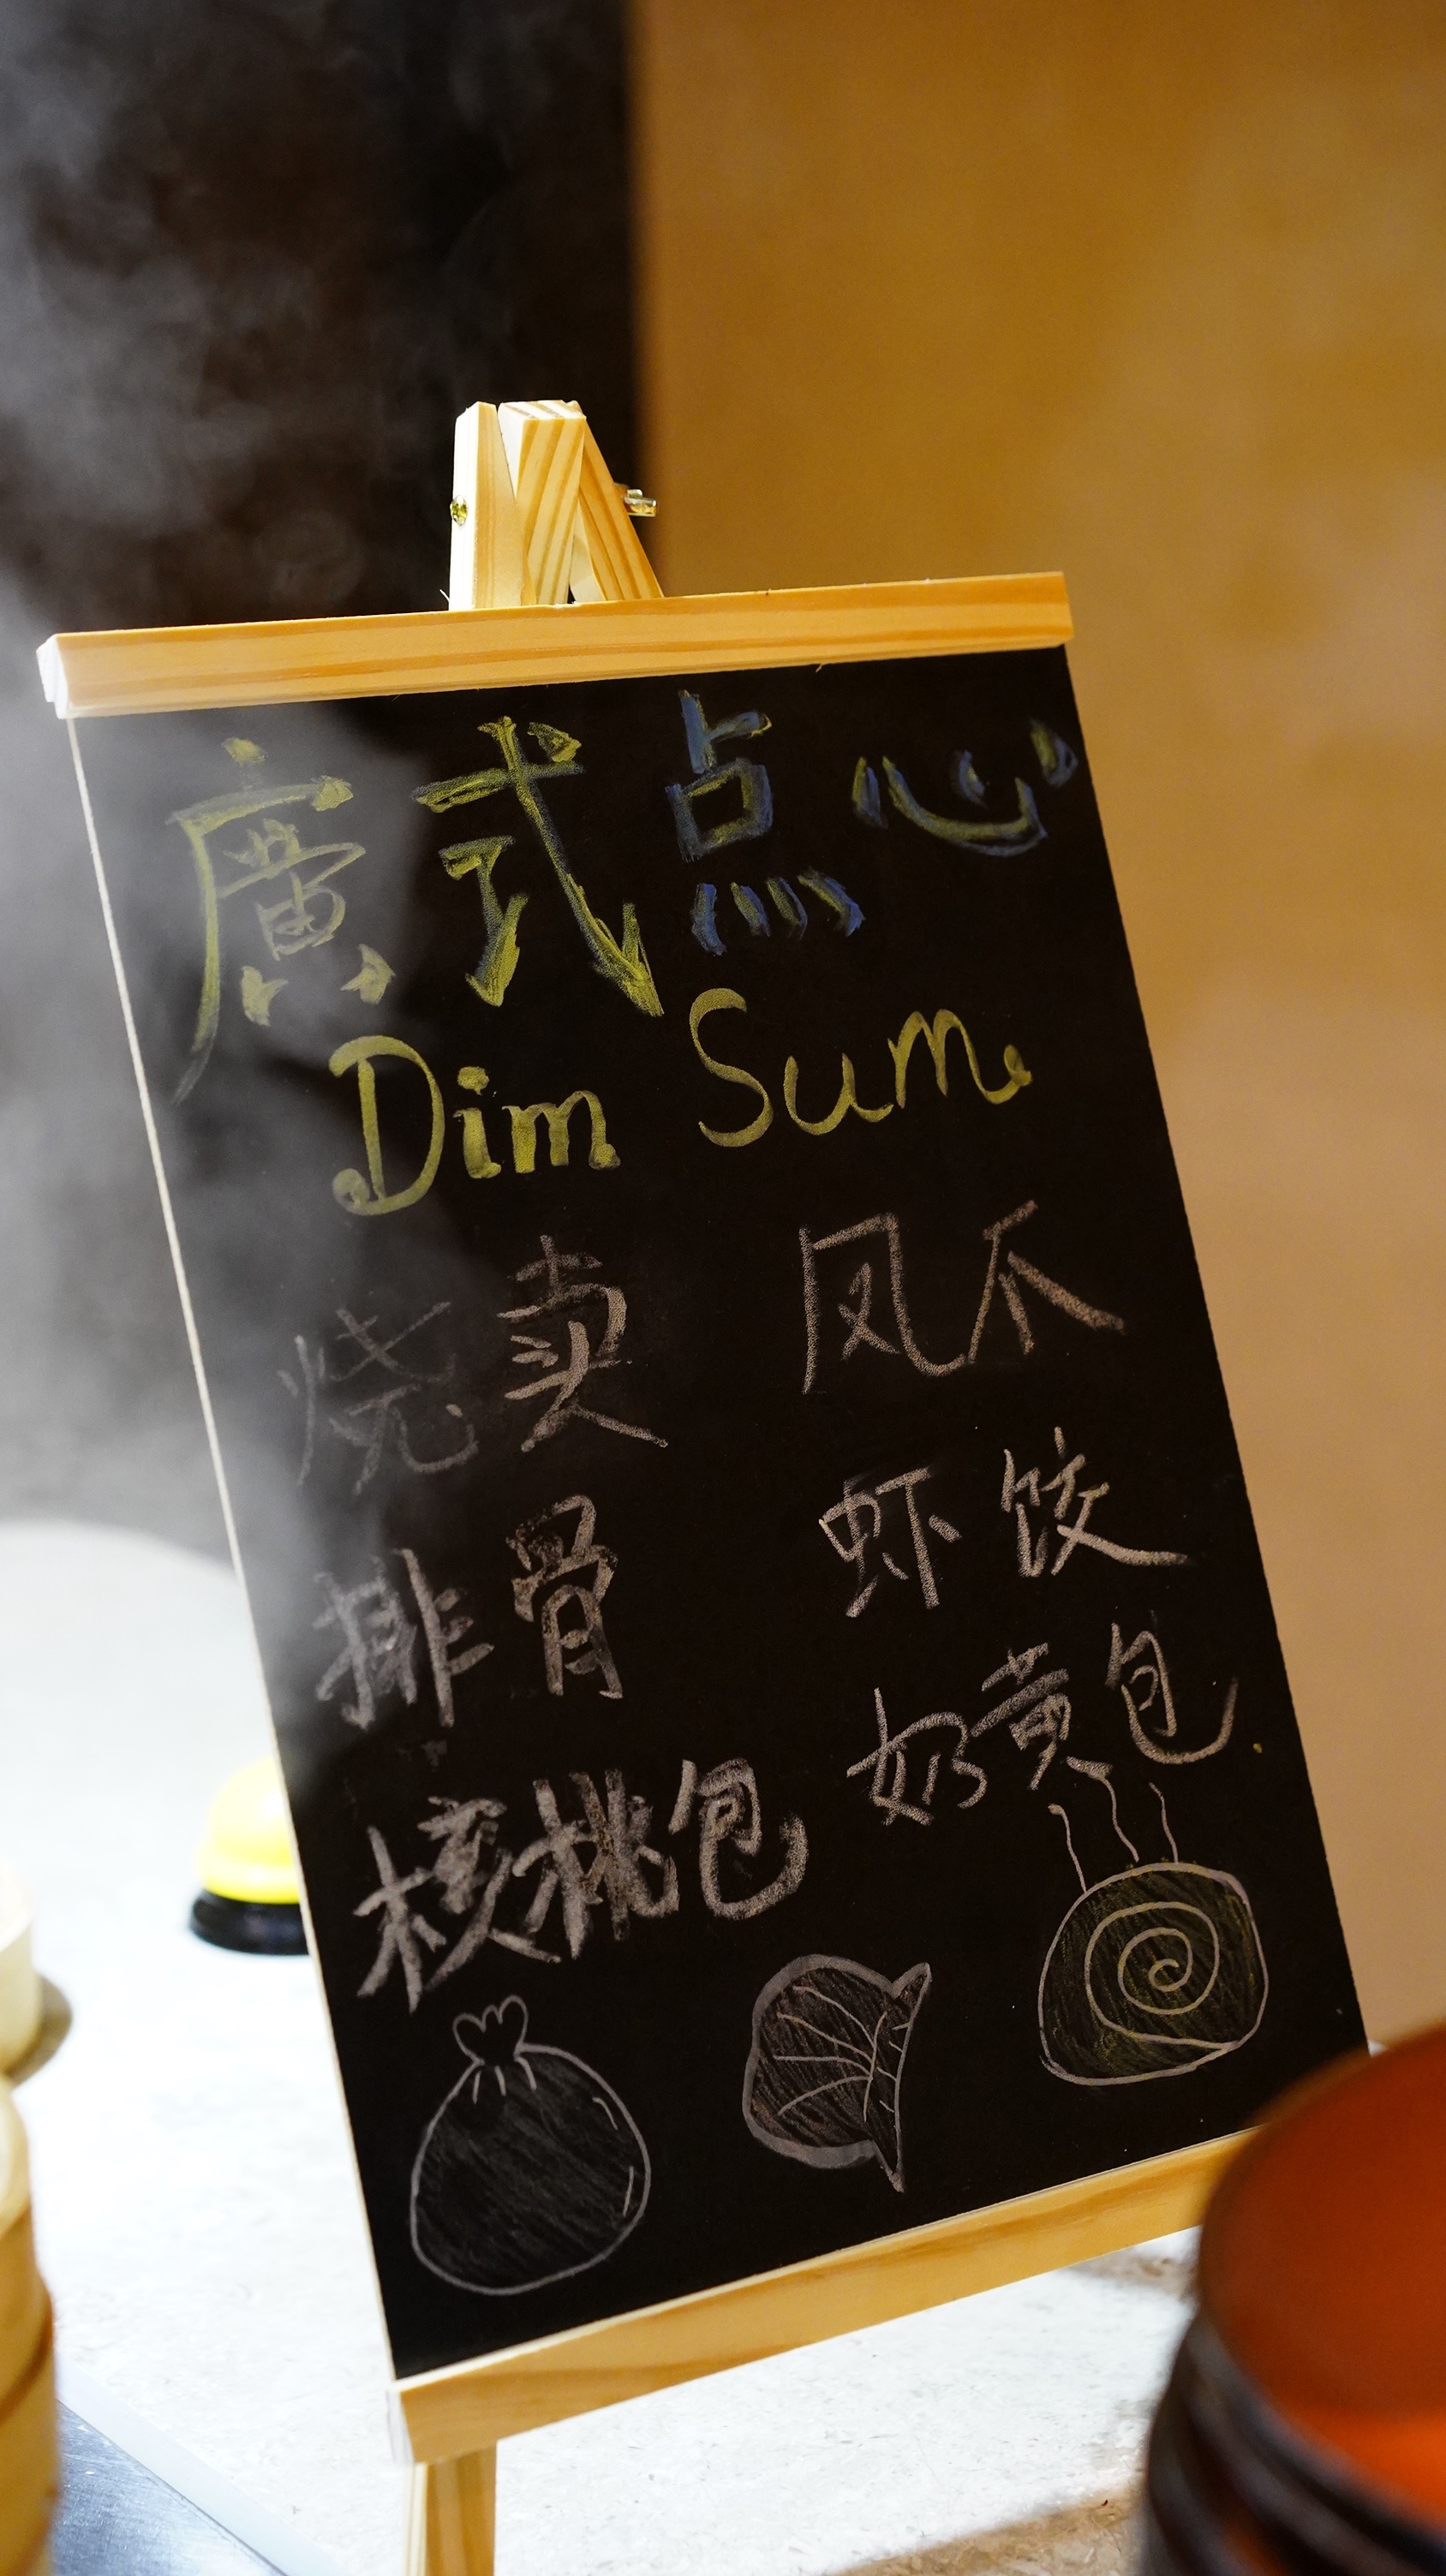 廣式点心
Dim Sum
烧卖 凤爪
排骨 虾饺
核桃包 奶黄包